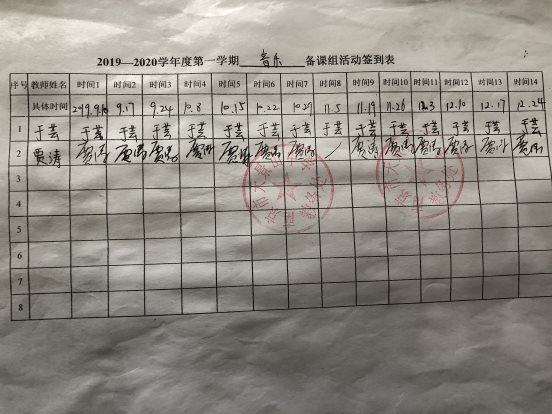 2019—2020学年度第一学期 音乐 备课组活动签到表
序号 教师姓名 时间1 时间2 时间3 时间4 时间5 时间6 时间7 时间8 时间9 时间10 时间11 时间12 时间13 时间14
具体时间 2019.9.10 9.17 9.24 10.8 10.15 10.22 10.29 11.5 11.19 11.26 12.3 12.10 12.17 12.24
1 于芸 于芸 于芸 于芸 于芸 于芸 于芸 于芸 于芸 于芸 于芸 于芸 于芸 于芸 于芸
2 贾涛 贾涛 贾涛 贾涛 贾涛 贾涛 贾涛 贾涛 / 贾涛 贾涛 贾涛 贾涛 贾涛 贾涛
3
4
5
6
7
8